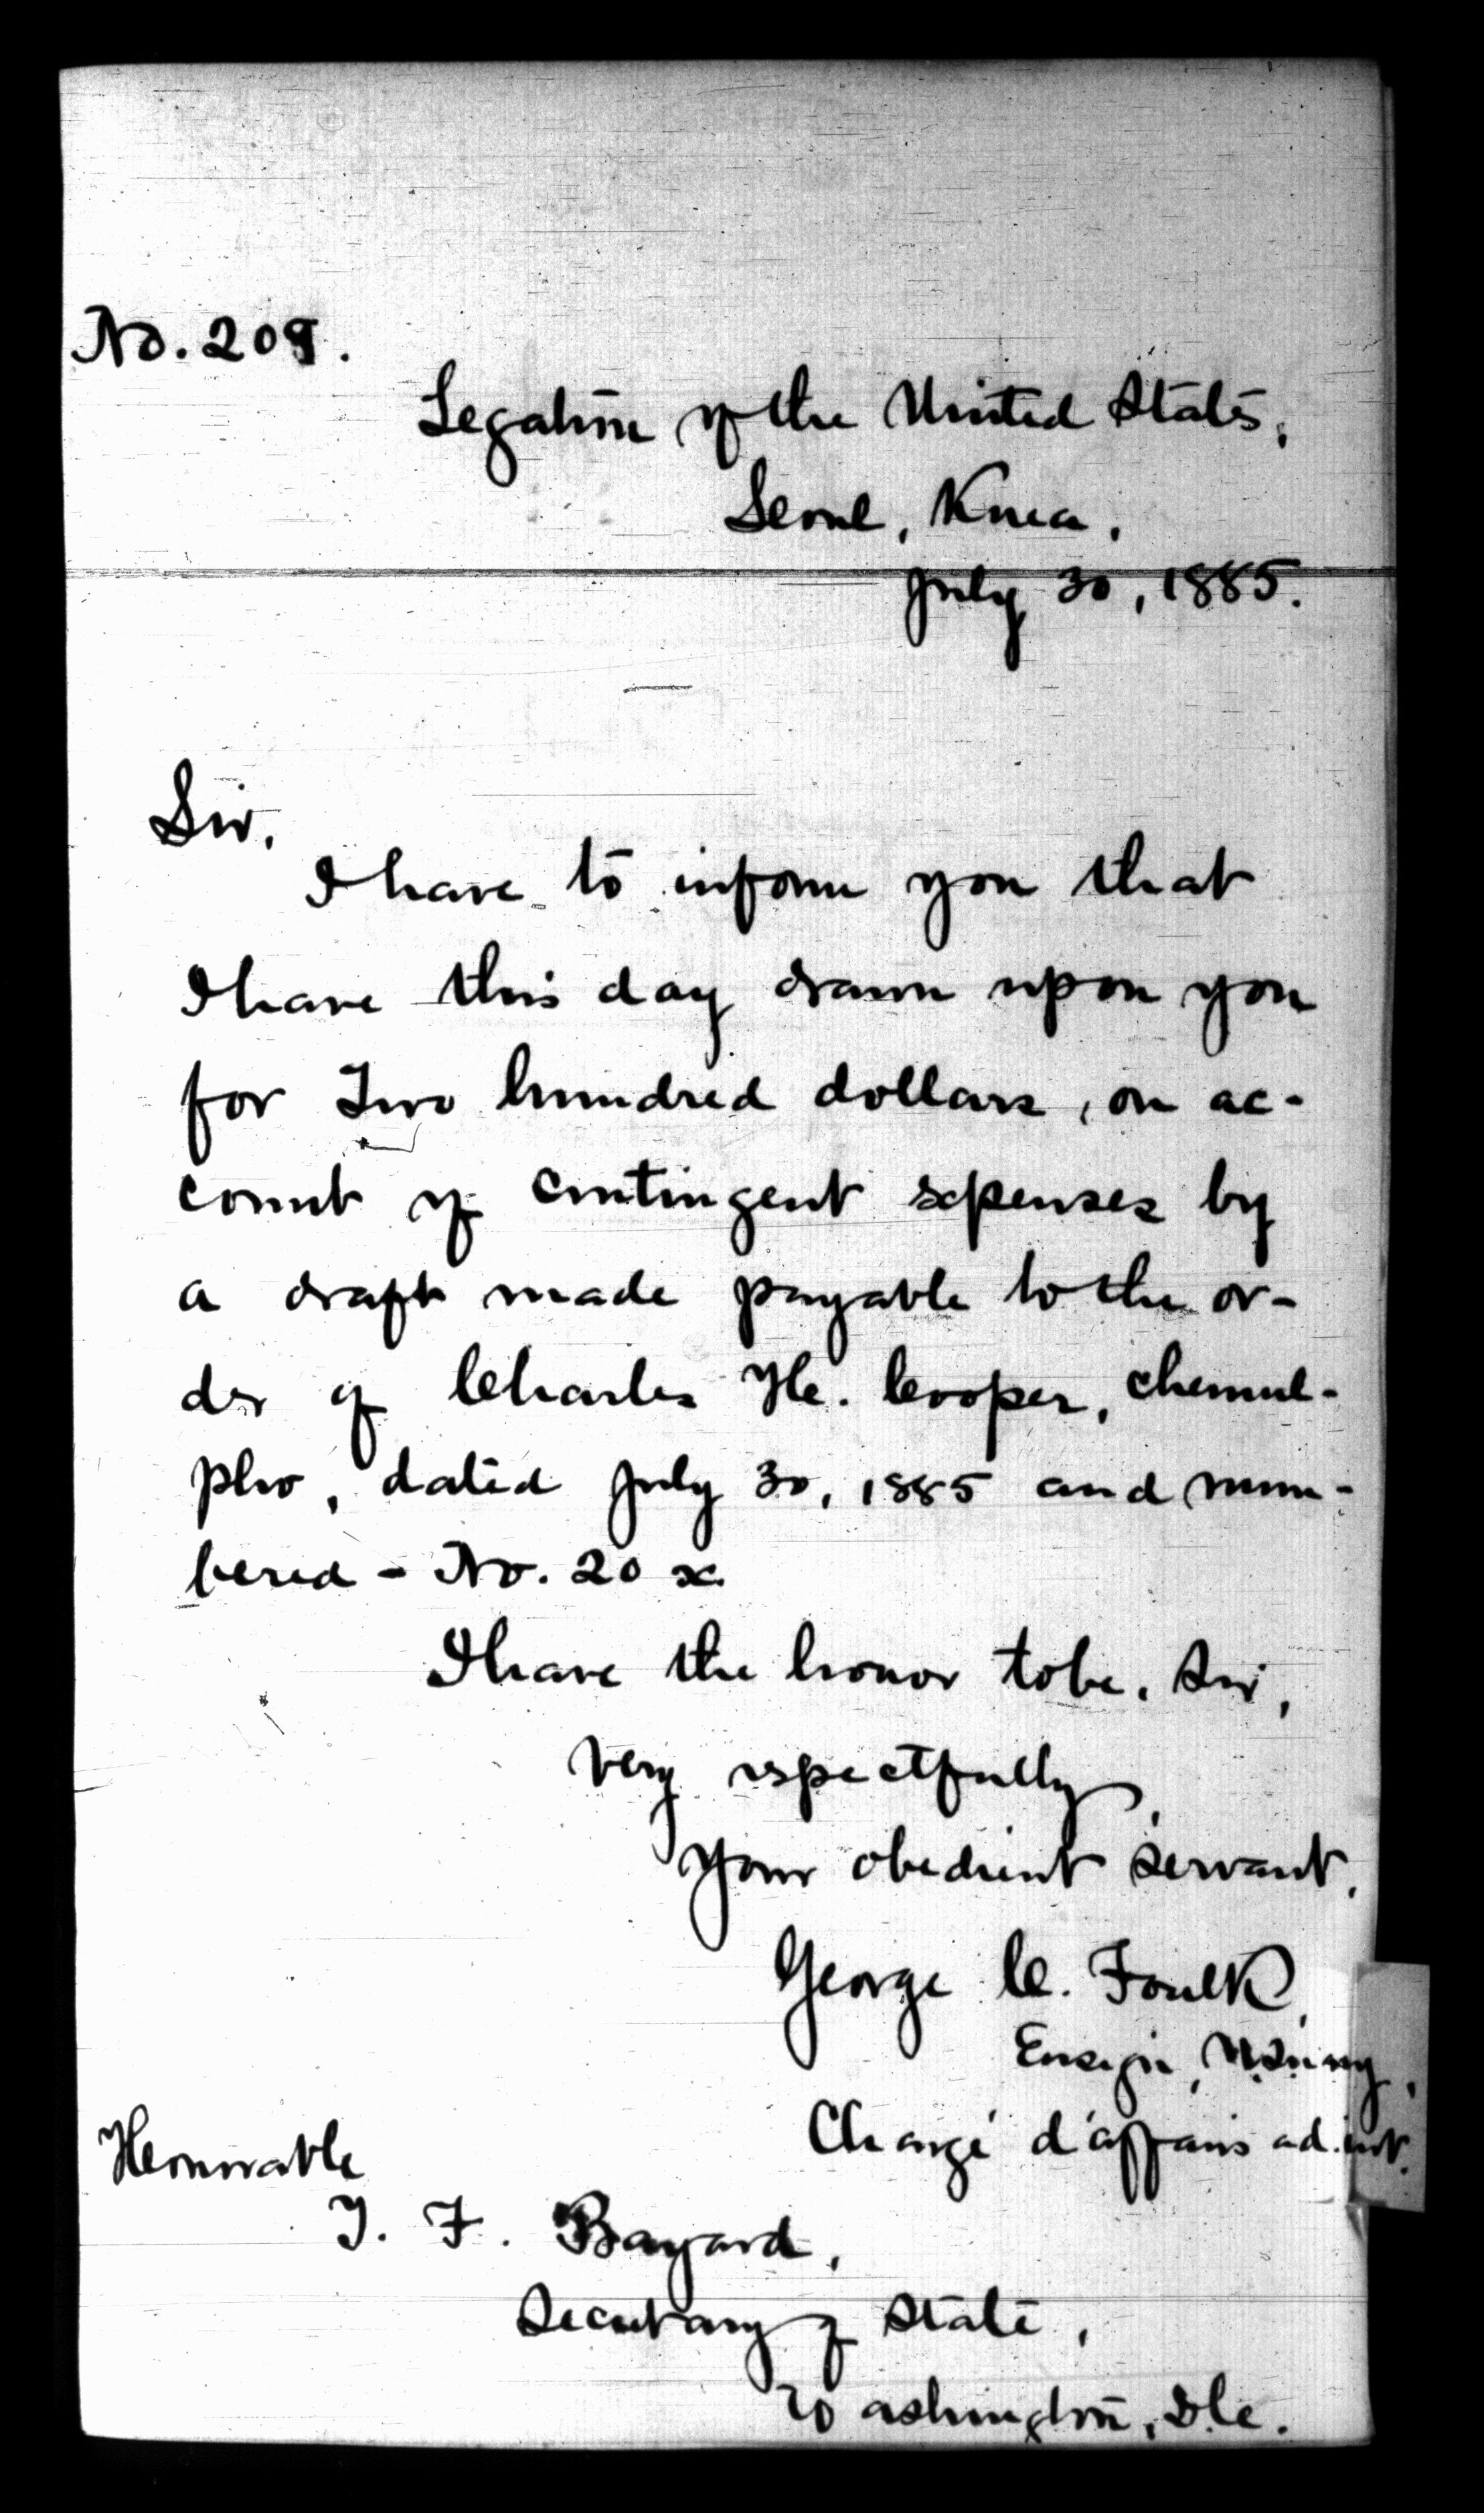 No. 209.
Legation of the United States,
Seoul, Korea,
July 30, 1885.
Sir,
I have to inform you that
I have this day drawn upon you
for Two hundred dollars, on ac-
count of contingent expenses by
a draft made payable to the or-
der of Charles H. Cooper, Chemul-
pho, dated July 30, 1885 and num-
bered - No. 20 x.
I have the honor to be, Sir,
Very respectfully,
Your obedient servant,
George C. Foulk,
Ensign, U.S. Navy,
Chargé d'affaires ad. int.
Honorable
T. F. Bayard,
Secretary of State,
Washington, D.C.